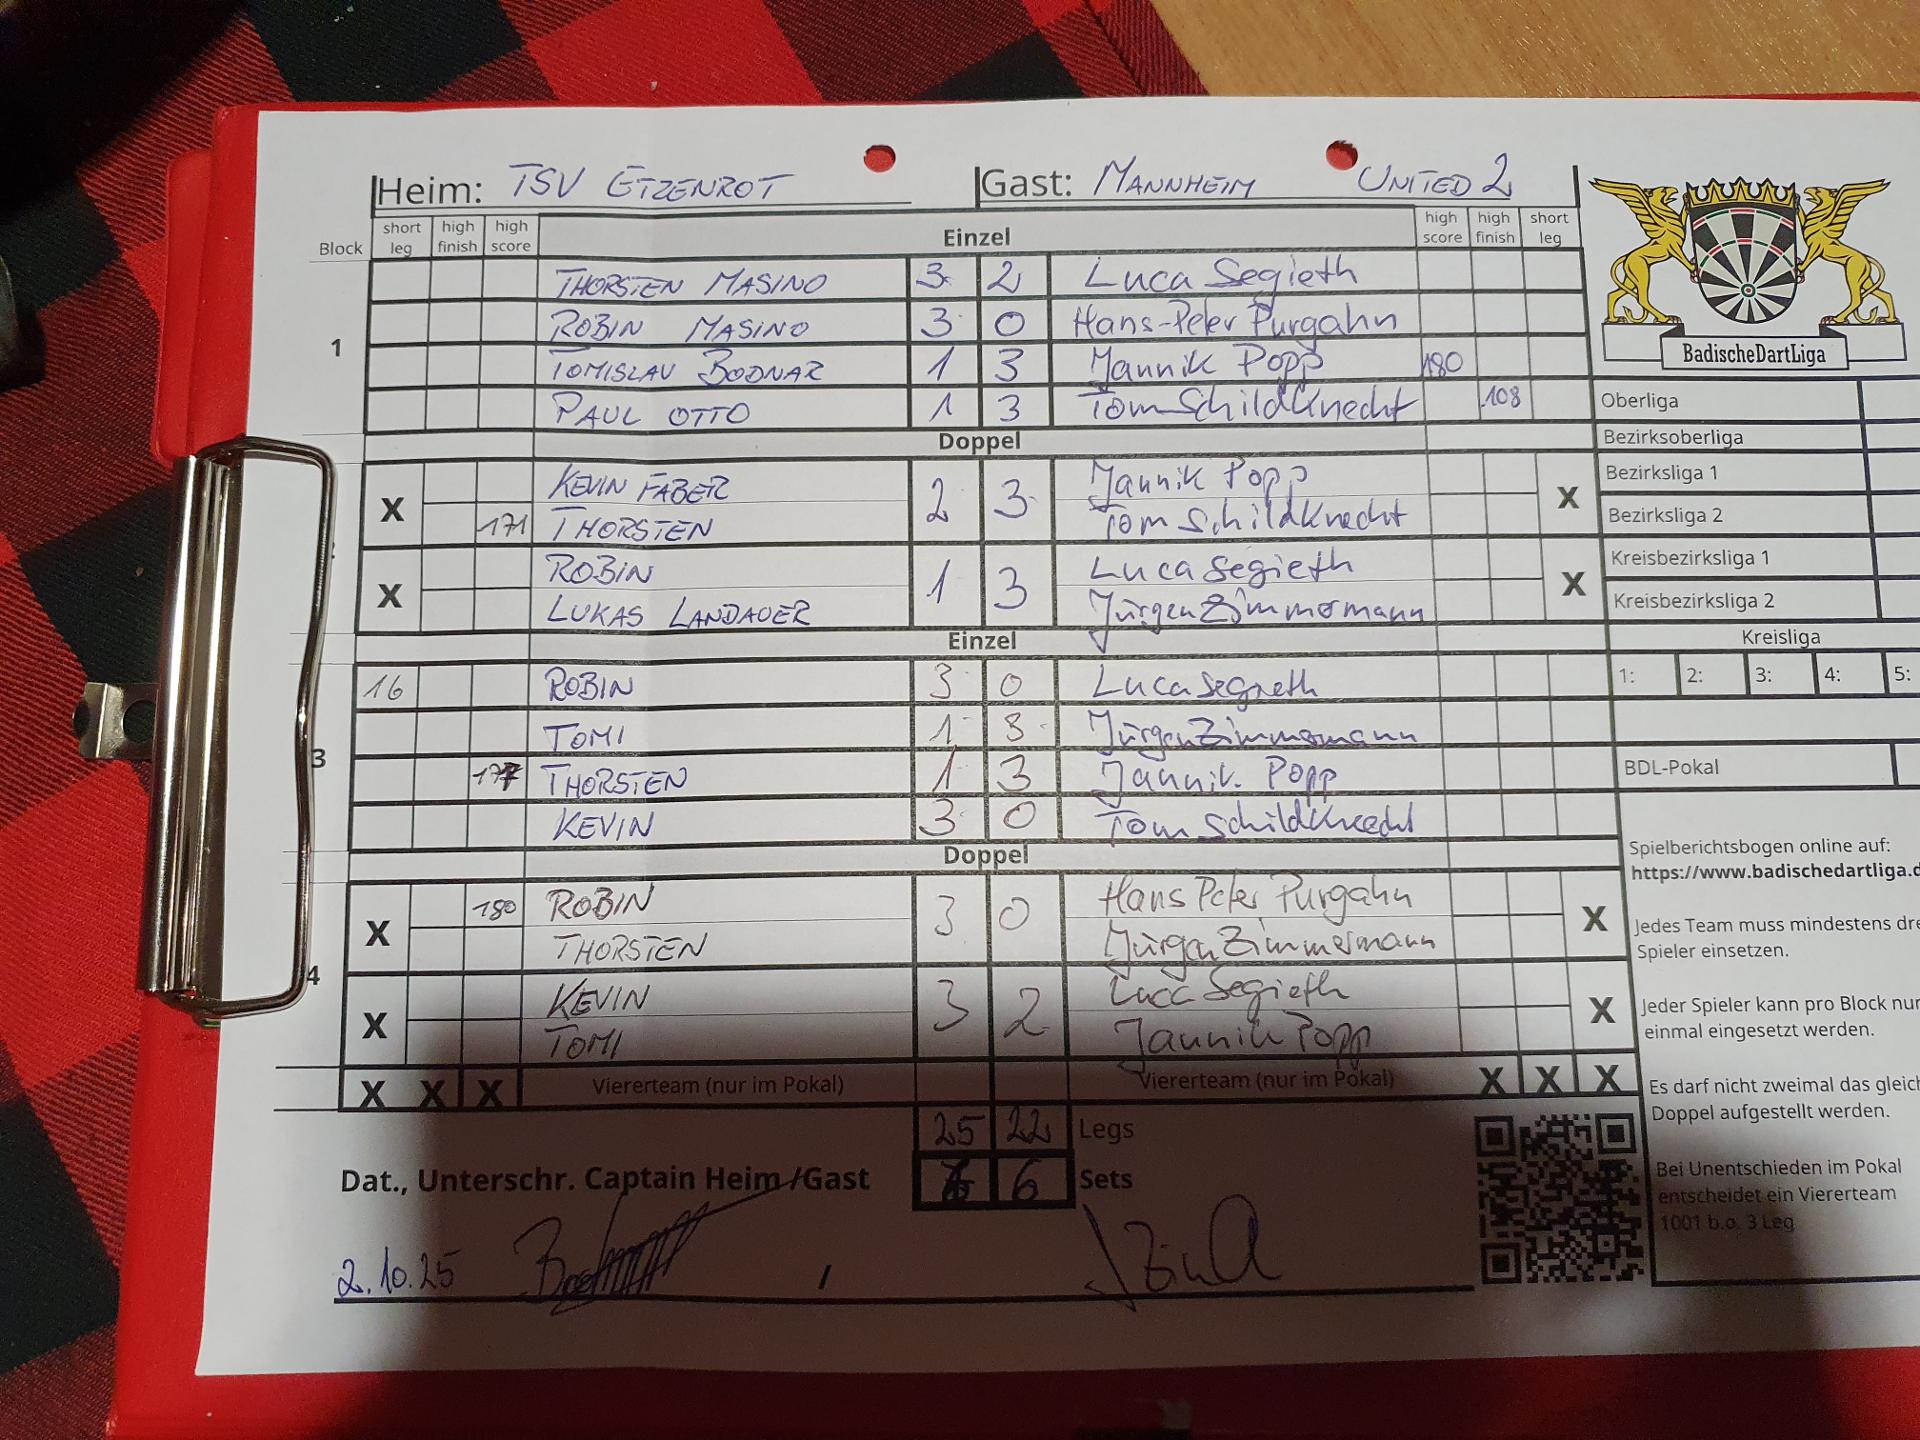 Heim: TSV ETZENROT Gast: MANNHEIM UNITED 2
Block short leg high finish high score Einzel high score high finish short leg
1
THORSTEN MASINO 3 2 Luca Segieth
ROBIN MASINO 3 0 Hans-Peter Purgahn
TOMISLAV BODNAR 1 3 Jannik Popp 180
PAUL OTTO 1 3 Tom Schildknecht 108
Doppel
X KEVIN FABER 2 3 Jannik Popp X
171 THORSTEN Tom Schildknecht
X ROBIN 1 3 Luca Segieth X
LUKAS LANDAUER Jürgen Zimmermann
Einzel
16 ROBIN 3 0 Luca Segieth
TOMI 1 3 Jürgen Zimmermann
3
THORSTEN 1 3 Jannik Popp
KEVIN 3 0 Tom Schildknecht
Doppel
X 180 ROBIN 3 0 Hans Peter Purgahn X
THORSTEN Jürgen Zimmermann
4
X KEVIN 3 2 Luca Segieth X
TOMI Jannik Popp
X X X Vierterteam (nur im Pokal) Vierterteam (nur im Pokal) X X X
25 22 Legs
Dat., Unterschr. Captain Heim /Gast 6 Sets
2.10.25 /
BadischeDartLiga
Oberliga
Bezirksoberliga
Bezirksliga 1
Bezirksliga 2
Kreisbezirksliga 1
Kreisbezirksliga 2
Kreisliga
1: 2: 3: 4: 5:
BDL-Pokal
Spielberichtsbogen online auf:
https://www.badischedartliga.d
Jedes Team muss mindestens dre
Spieler einsetzen.
Jeder Spieler kann pro Block nur
einmal eingesetzt werden.
Es darf nicht zweimal das gleich
Doppel aufgestellt werden.
Bei Unentschieden im Pokal
entscheidet ein Viererteam
1001 b.o. 3 Leg